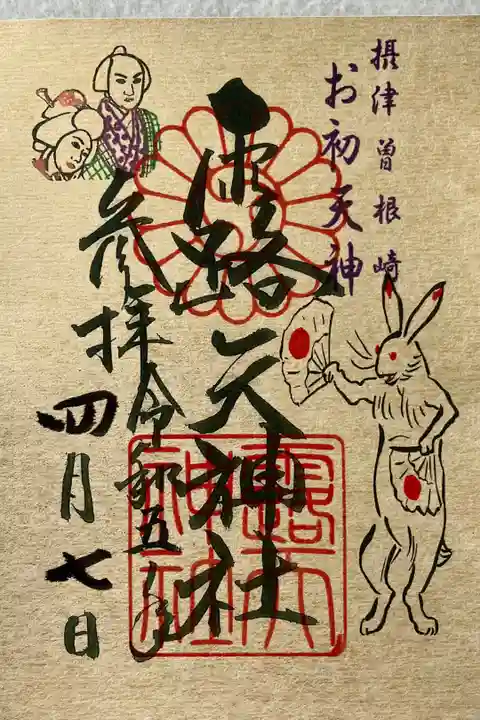 摂津曽根崎
お初天神
露天神社
参拝
令和五年
四月七日
露天
神社